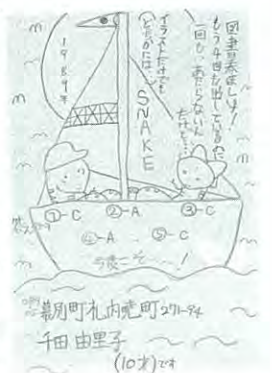 図書券ほしいよ!
もう4回も出しているのに
一回も、あたらないんだけど…
イラストだけでも
とどかないかは…
1989年
SNAKE
①-C ②-A ③-C
④-A ⑤-C
今度こそ…!
幕別町札内暁町271-94
千田 由里子
(10才)です